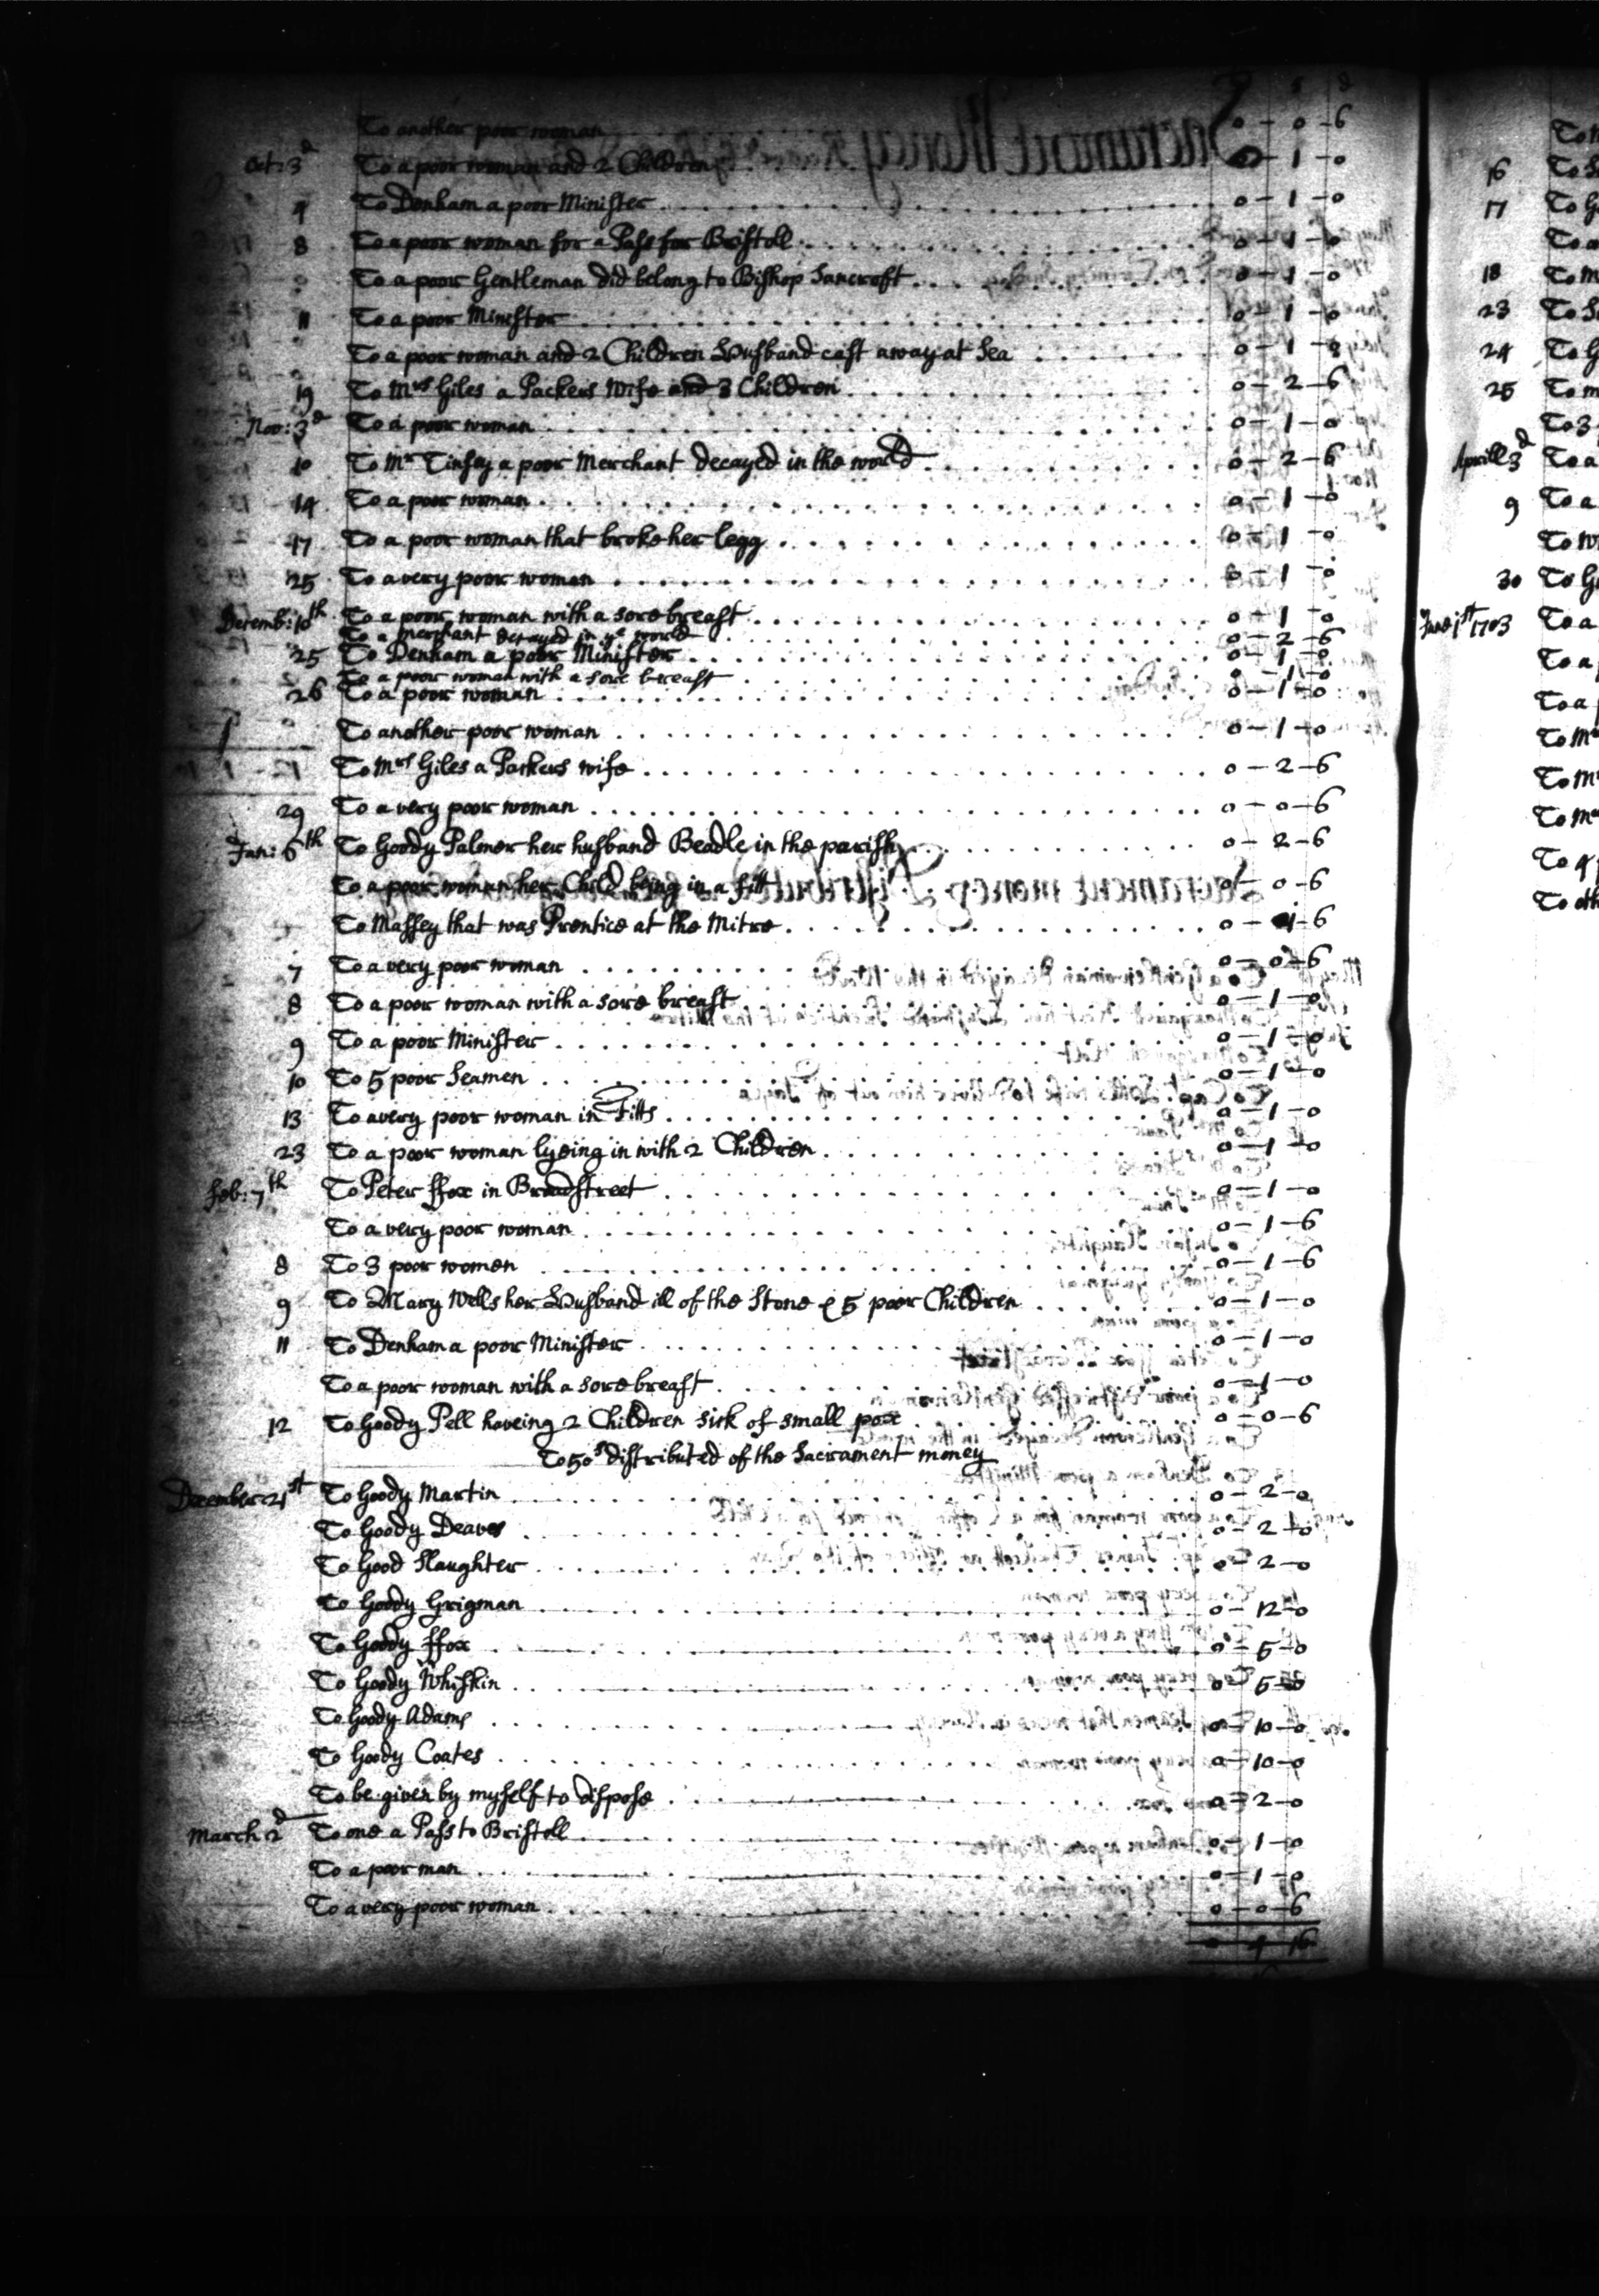 To another poor woman 0 - 0 - 6
Oct: 3d To a poor woman and 2 Children 0 - 1 - 0
4 To Denham a poor Minister 0 - 1 - 0
8 To a poor woman for a Pass for Bristoll 0 - 1 - 0
To a poor Gentleman did belong to Bishop Sancroft 0 - 1 - 0
11 To a poor Minister 0 - 1 - 0
To a poor woman and 2 Children Husband cast away at Sea 0 - 1 - 0
19 To Mrs Giles a Packers Wife and 3 Children 0 - 2 - 6
Nov: 3d To a poor woman 0 - 1 - 0
10 To Mr Tinsey a poor Merchant decayed in the world 0 - 2 - 6
14 To a poor woman 0 - 1 - 0
17 To a poor woman that broke her legg 0 - 1 - 0
25 To a very poor woman 0 - 1 - 0
Decemb: 10th To a poor woman with a sore breast 0 - 1 - 0
To a Merchant decayed in ye world 0 - 2 - 6
25 To Denham a poor Minister 0 - 1 - 0
To a poor woman with a sore breast 0 - 1 - 0
26 To a poor woman 0 - 1 - 0
To another poor woman 0 - 1 - 0
To Mrs Giles a Packers wife 0 - 2 - 6
29 To a very poor woman 0 - 0 - 6
Jan: 6th To Goody Palmer her husband Beadle in the parish 0 - 2 - 6
To a poor woman her Child being in a fitt 0 - 0 - 6
To Massey that was Prentice at the Mitre 0 - 1 - 6
7 To a very poor woman 0 - 0 - 6
8 To a poor woman with a sore breast 0 - 1 - 0
9 To a poor Minister 0 - 1 - 0
10 To 5 poor Seamen 0 - 1 - 0
13 To a very poor woman in Fitts 0 - 1 - 0
23 To a poor woman lyeing in with 2 Children 0 - 1 - 0
Feb: 7th To Peter ffox in Broadstreet 0 - 1 - 0
To a very poor woman 0 - 1 - 6
8 To 3 poor women 0 - 1 - 6
9 To Mary Wells her Husband ill of the Stone & 5 poor Children 0 - 1 - 0
11 To Denham a poor Minister 0 - 1 - 0
To a poor woman with a sore breast 0 - 1 - 0
12 To Goody Pell haveing 2 Children sick of small pox 0 - 0 - 6
To 50s distributed of the Sacrament money
December 21st To Goody Martin 0 - 2 - 0
To Goody Deaves 0 - 2 - 0
To Good Slaughter 0 - 2 - 0
To Goody Grigman 0 - 12 - 0
To Goody ffox 0 - 5 - 0
To Goody Whiskin 0 - 5 - 0
To Goody Adams 0 - 10 - 0
To Goody Coates 0 - 10 - 0
To be given by myself to dispose 0 - 2 - 0
March 2d To one a Pass to Bristoll 0 - 1 - 0
To a poor man 0 - 1 - 0
To a very poor woman 0 - 0 - 6
16
17
18 To M
23
24
25 To m
To 3
Aprill 3d To a
9 To a
30
June 1st 1703 To a
To a
To a
To
To
To
To 4
To oth